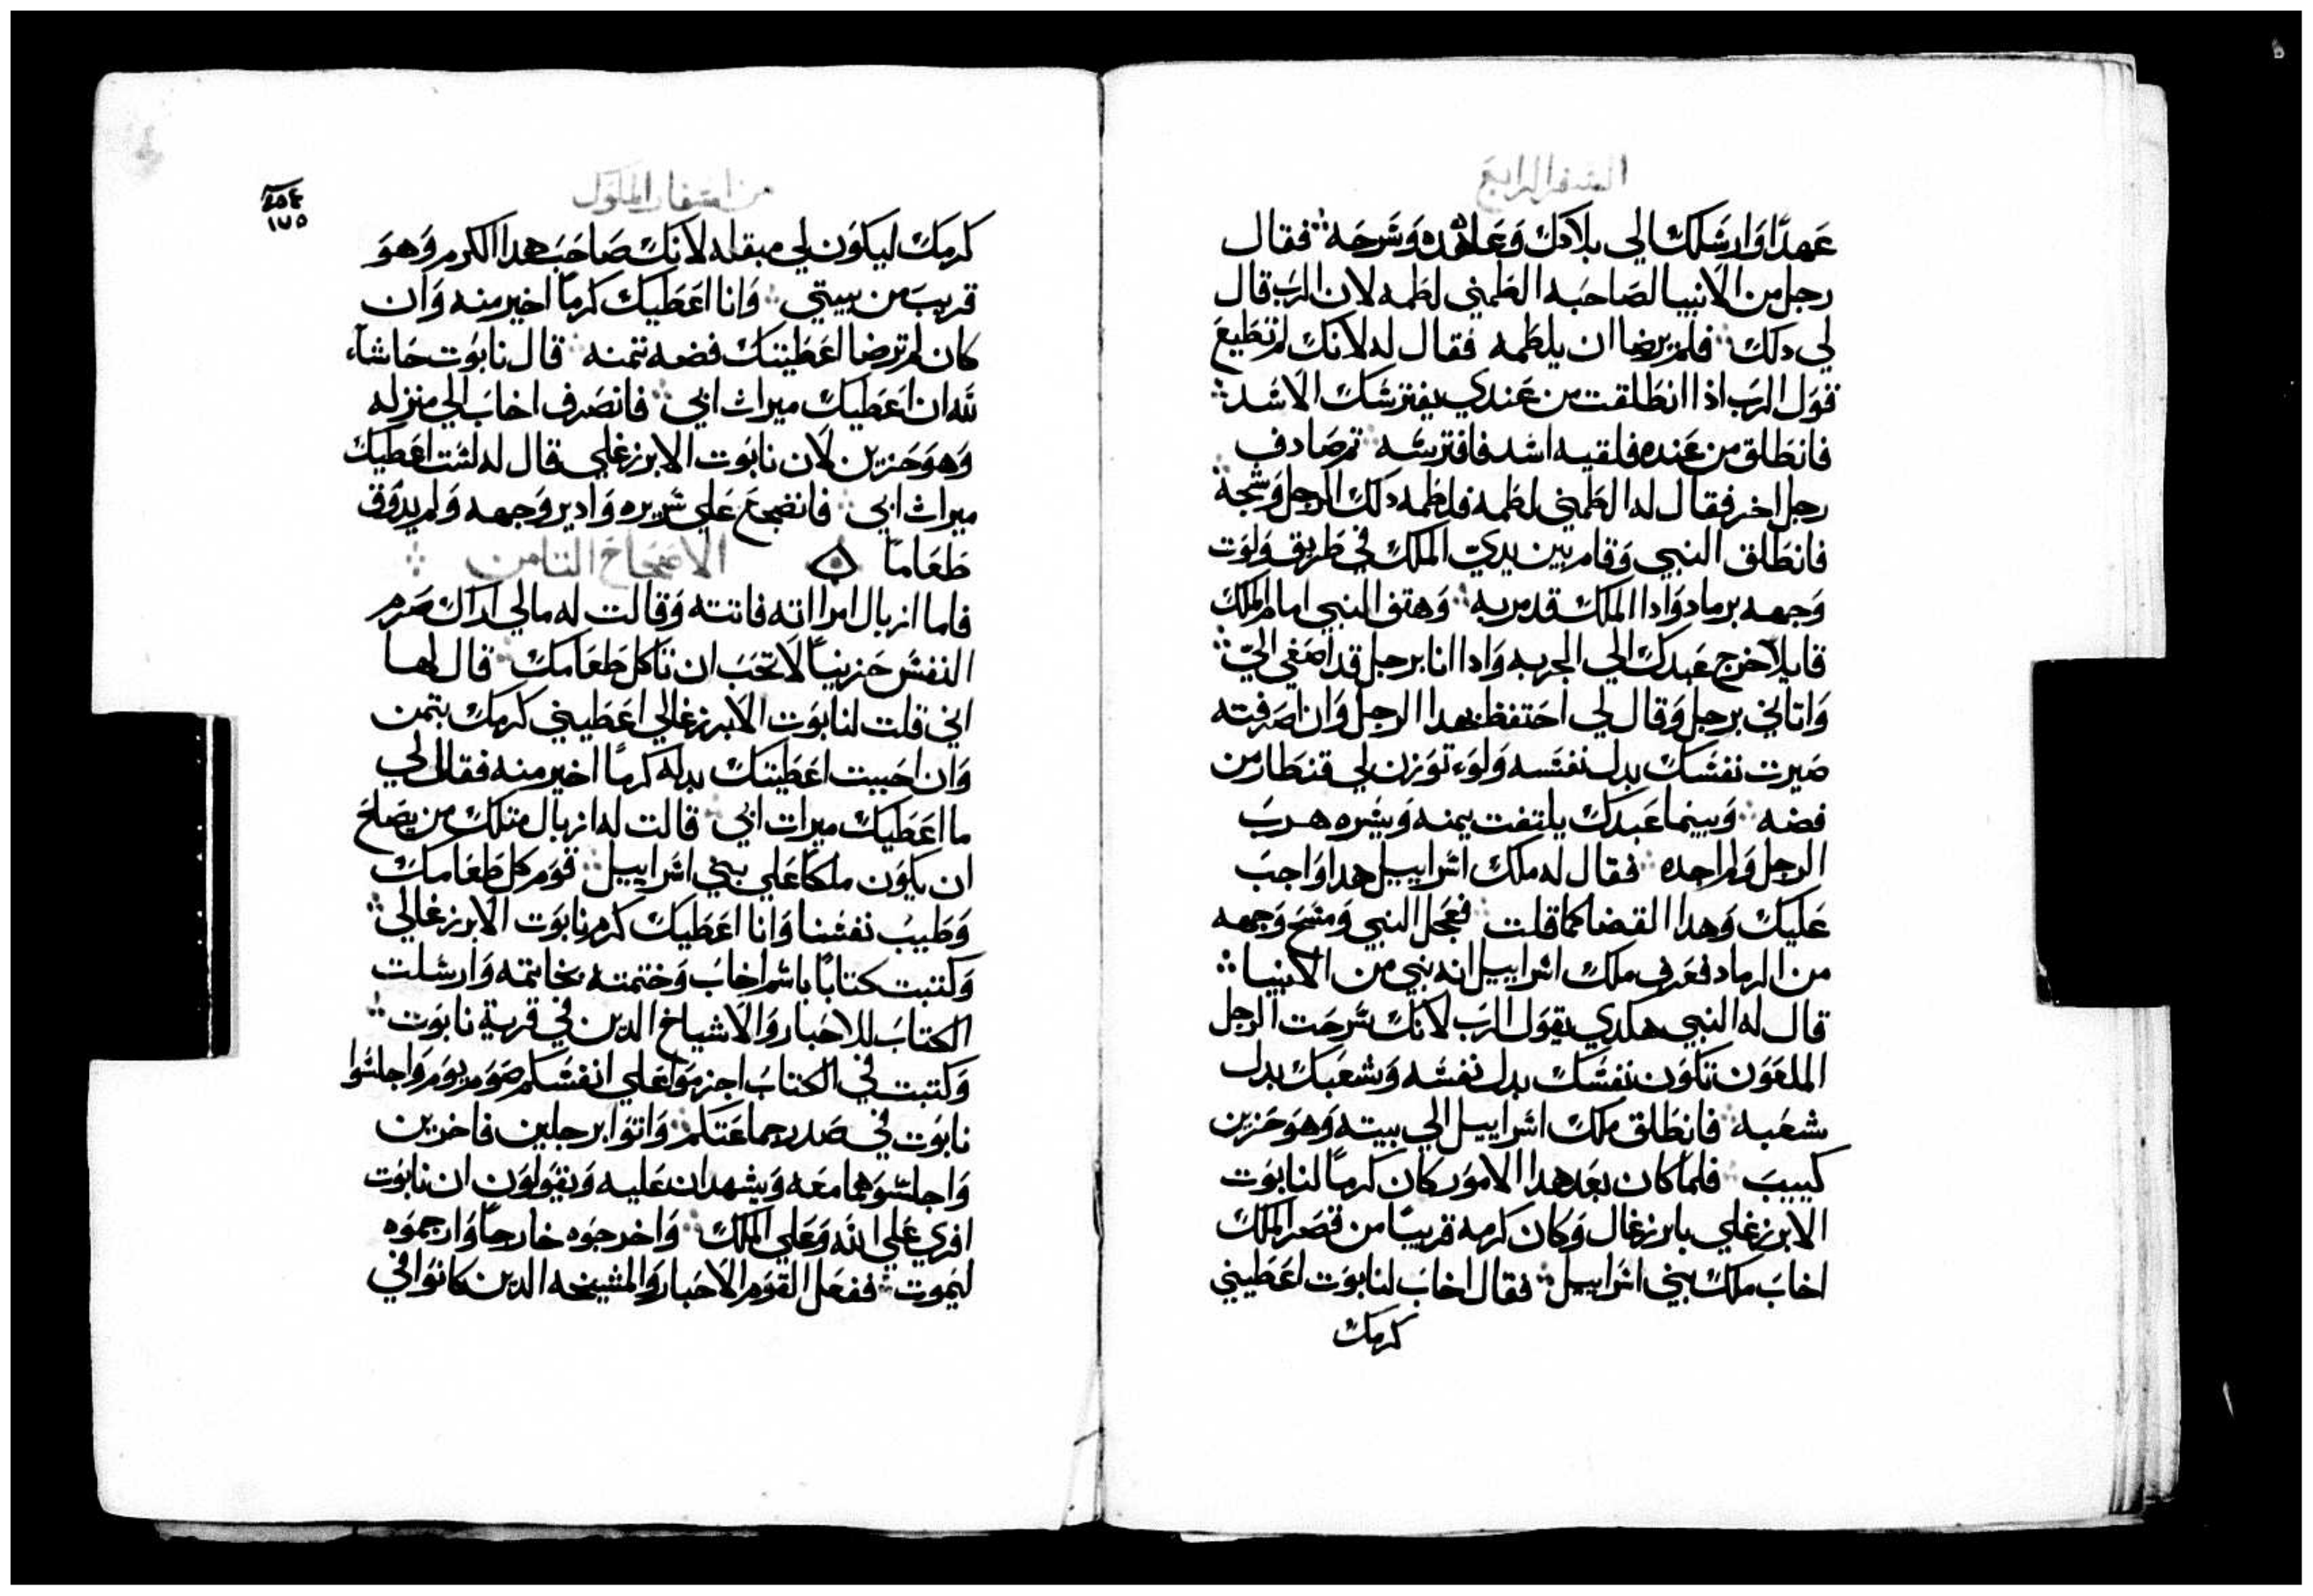 السفر الرابع
عهدًا وارسلك الي بلادك وعاهده وسرحه فقال
رجل من الانبيا لصاحبه الطمني لطمه لان الرب قال
لي دلك فلم يرضا ان يلطمه فقال له لانك لم تطيع
قول الرب اذا انطلقت من عندي يفترسك الاسد
فانطلق من عنده فلقيه اسد فافترسه تم صادف
رجل اخر فقال له الطمني لطمه فلطمه دلك الرجل وشجه
فانطلق النبي وقام بين يدي الملك في طريق ولوت
وجهه برماد وادا الملك قد مر به وهتف النبي امام الملك
قايلاً خرج عبدك الي الحربه وادا انا برجل قد اصغي الي
واتاني برجل وقال لي احتفظ بهدا الرجل وان اصرفته
صيرت نفسك بدل نفسه ولوء توزن لي قنطار من
فضه وبينما عبدك يلتفت يمنه ويسره هرب
الرجل ولم اجده فقال له ملك اسراييل هدا واجب
عليك وهدا القضا كما قلت فعجل النبي ومسح وجهه
من الرماد فعرف ملك اسراييل انه نبي من الانبيا
قال له النبي هكدي يقول الرب لانك سرحت الرجل
الملعون تكون نفسك بدل نفسه وشعبك بدل
شعبه فانطلق ملك اسراييل الي بيته وهو حزين
كييب فلما كان بعد هدا الامور كان كرمًا لنابوت
الابرزغلي بابرزغال وكان كرمه قريبًا من قصر الملك
اخاب ملك بني اسراييل فقال اخاب لنابوت اعطيني
كرمك
من اسفار الملوك
٢٥٤
١٧٥
كرمك ليكون لي مبقله لانك صاحب هدا الكرم وهو
قريب من بيتي وانا اعطيك كرمًا اخير منه وان
كان لم ترضا اعطيتك فضه تمنه قال نابوت حاشاء
لله ان اعطيك ميرات ابي فانصرف اخاب الي منزله
وهو حزين لان نابوت الابرزغلي قال له لست اعطيك
ميرات ابي فانضجع علي سريره وادير وجهه ولم يدوق
طعاماً الاصحاح التامن
فاما ازبال امراته فاتته وقالت له مالي اراك صرم
النفس حزينًا لا تحب ان تاكل طعامك قال لها
اني قلت لنابوت الابرزغالي اعطيني كرمك بتمن
وان احببت اعطيتك بدله كرمًا اخير منه فقال لي
ما اعطيك ميرات ابي قالت له ازبال متلك من يصلح
ان يكون ملكًا علي بني اسراييل قوم كل طعامك
وطيب نفسنا وانا اعطيك كرم نابوت الابرزغالي
وكتبت كتابًا باسم اخاب وختمته بخاتمه وارسلت
الكتاب للاحبار والاشياخ الدين في قرية نابوت
وكتبت في الكتاب اجزموا علي انفسكم صوم يوم واجلسوا
نابوت في صدر جماعتكم واتوا برجلين فاخرين
واجلسوهما معه ويشهدان عليه ويقولون ان نابوت
افري علي الله وعلي الملك واخرجوه خارجًا وارجموه
ليموت ففعل القوم الاحبار والمشيخه الدين كانوا في